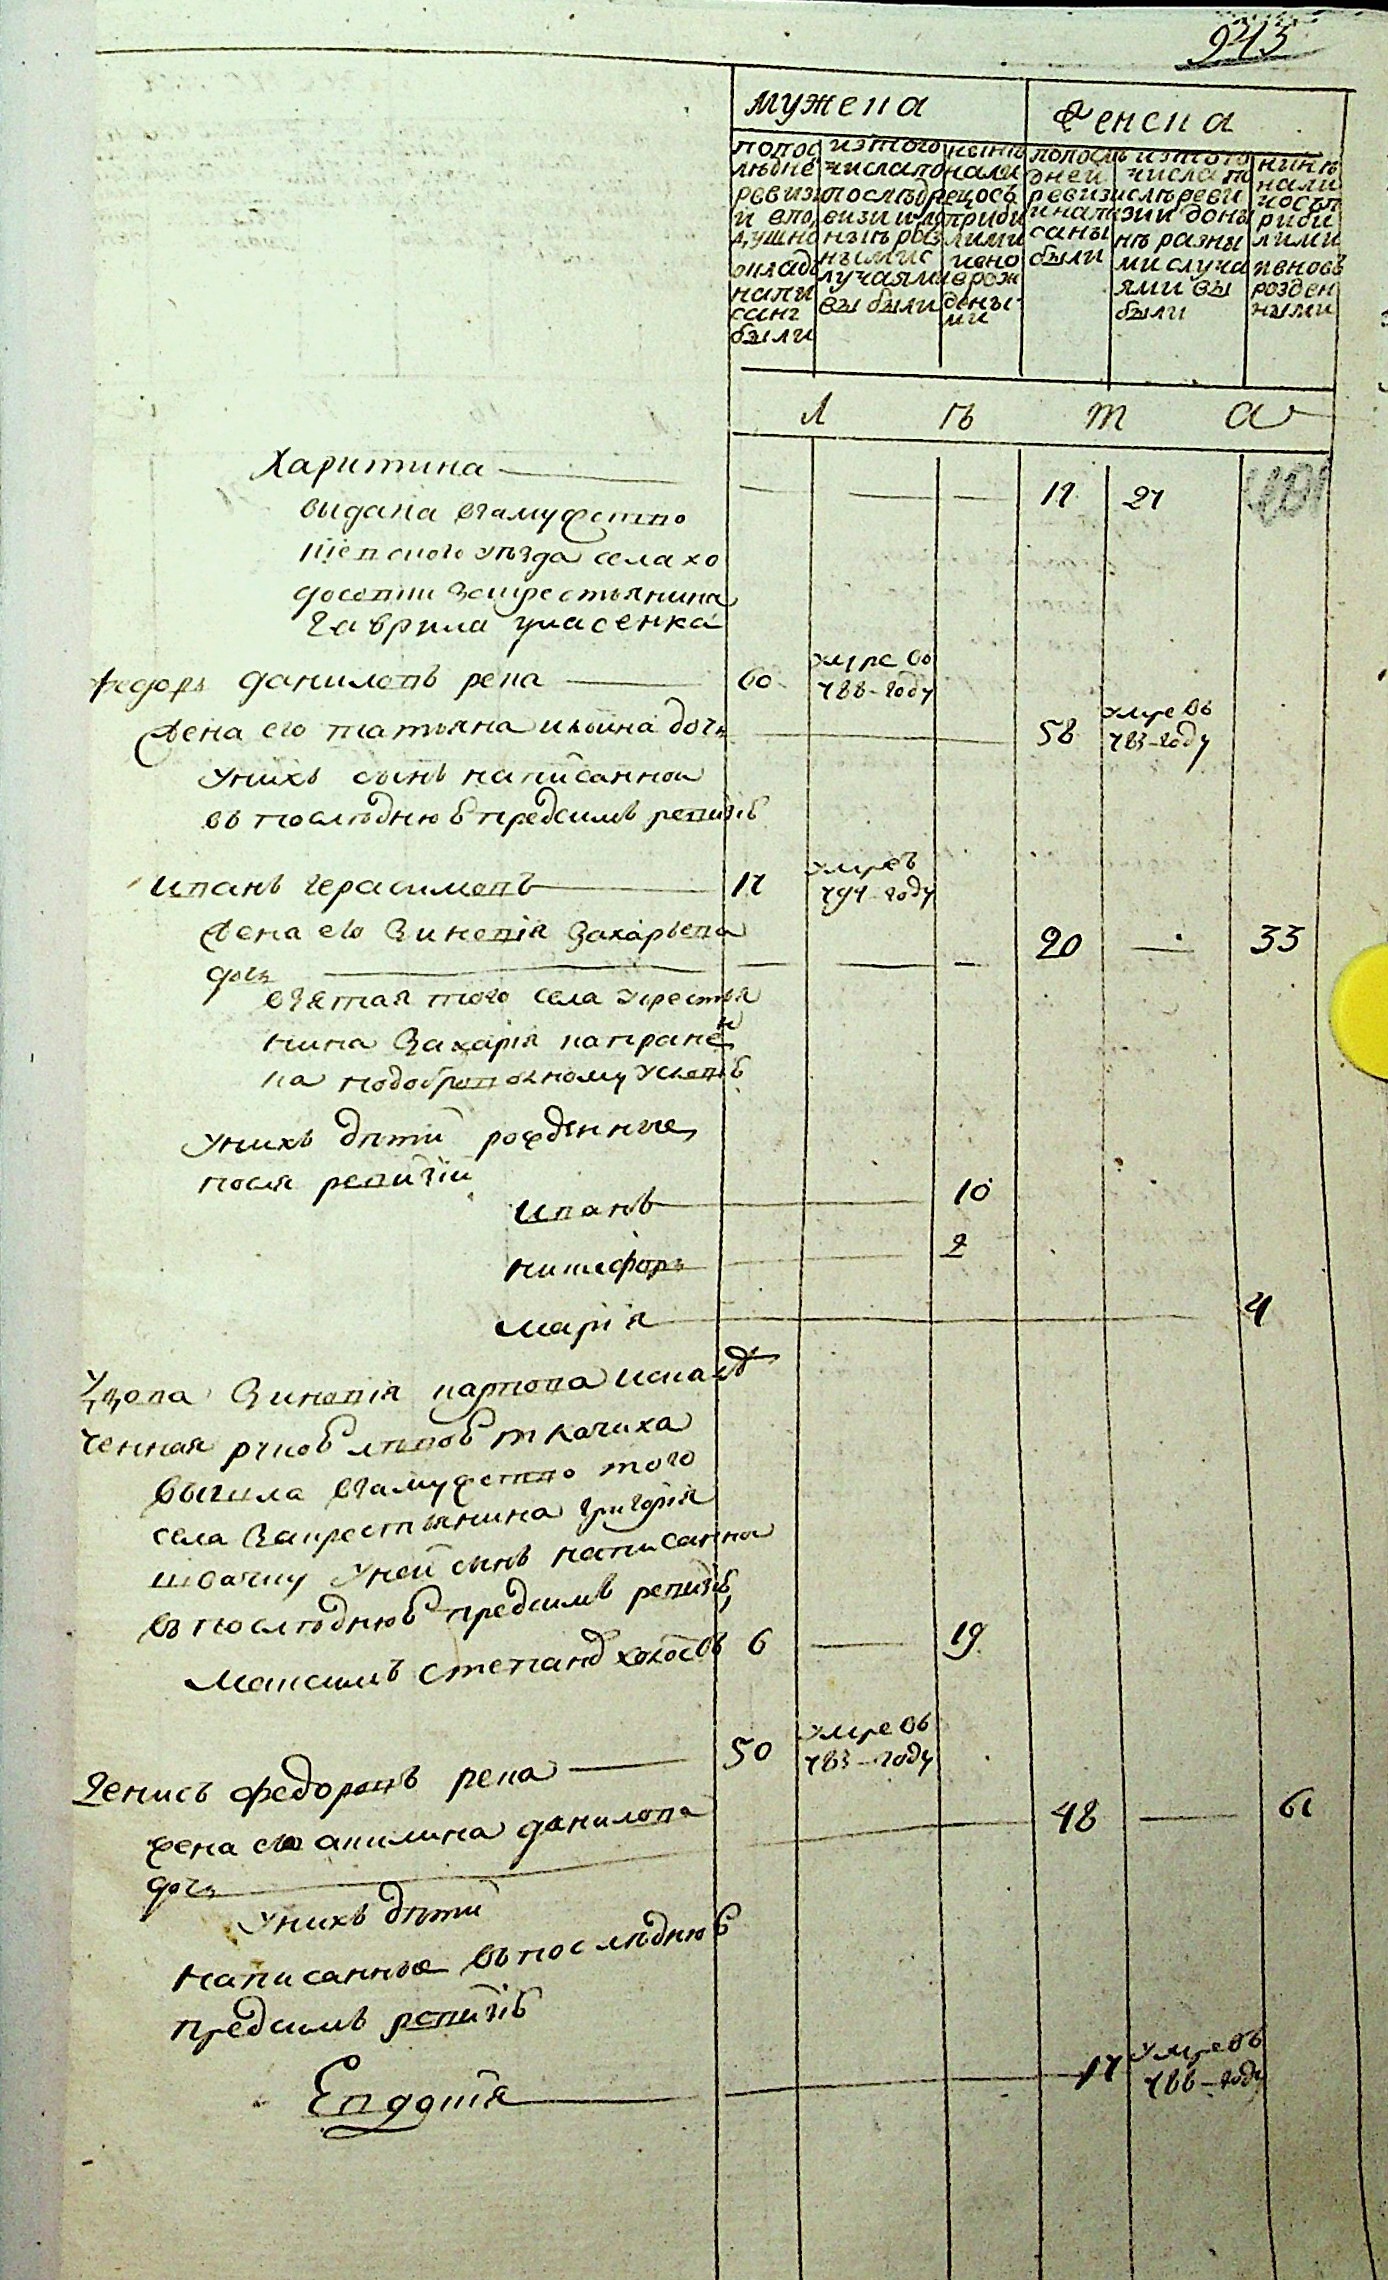 943
мужеска
женска
попос
лѣдне
ревиз
и впо
душно
окладъ
напи
санг
были
изтого
числапо
послѣдре
визи идо
нынѣ раз
нымис
лучаями
выбыли
нынѣ
нали
цосъ
приби
лими
ивно
врож
денны
ми
попослѣ
дней
ревизи
инапи
саны
были
изтого
числа по
слѣ реви
зии доны
нѣ разны
ми случа
ями вы
были
нинѣ
нали
цосъп
риби
лими
ивновъ
розден
ными
л ѣ т а
Харитина 17 27
выдана взамужство
села хо
крестьянина
Гаврила уласенка
федоръ данилавъ репа 60 умре въ 788-году
жена его татьяна ильина дочь 58 умре въ 783-году
унихъ сынъ написанной
въ последнюю предсимъ ревизію
иванъ герасимовъ 17 умре въ 791-году
жена его Зиновія Захарьева 20 — 33
дочь
взятая того села крестья
нина Захарія
унихъ дѣти рожденные
после ревизіи
иванъ 10
никифоръ 2
марія 4
удова Зиновія карпова
ченная ткачиха
вышла взамужство того
села Закрестьянина григорія
швачку уней сынъ написанной
въ последнюю предсимъ ревизію
максимъ степановъ холостъ 6 — 19
денисъ федоровъ репа 50 умре въ 783-году
жена его акилина данилова 48 — 61
дочь
унихъ дѣти
написанные въ последнюю
предсимъ ревизію
Евдокія 17 умре въ 788-году